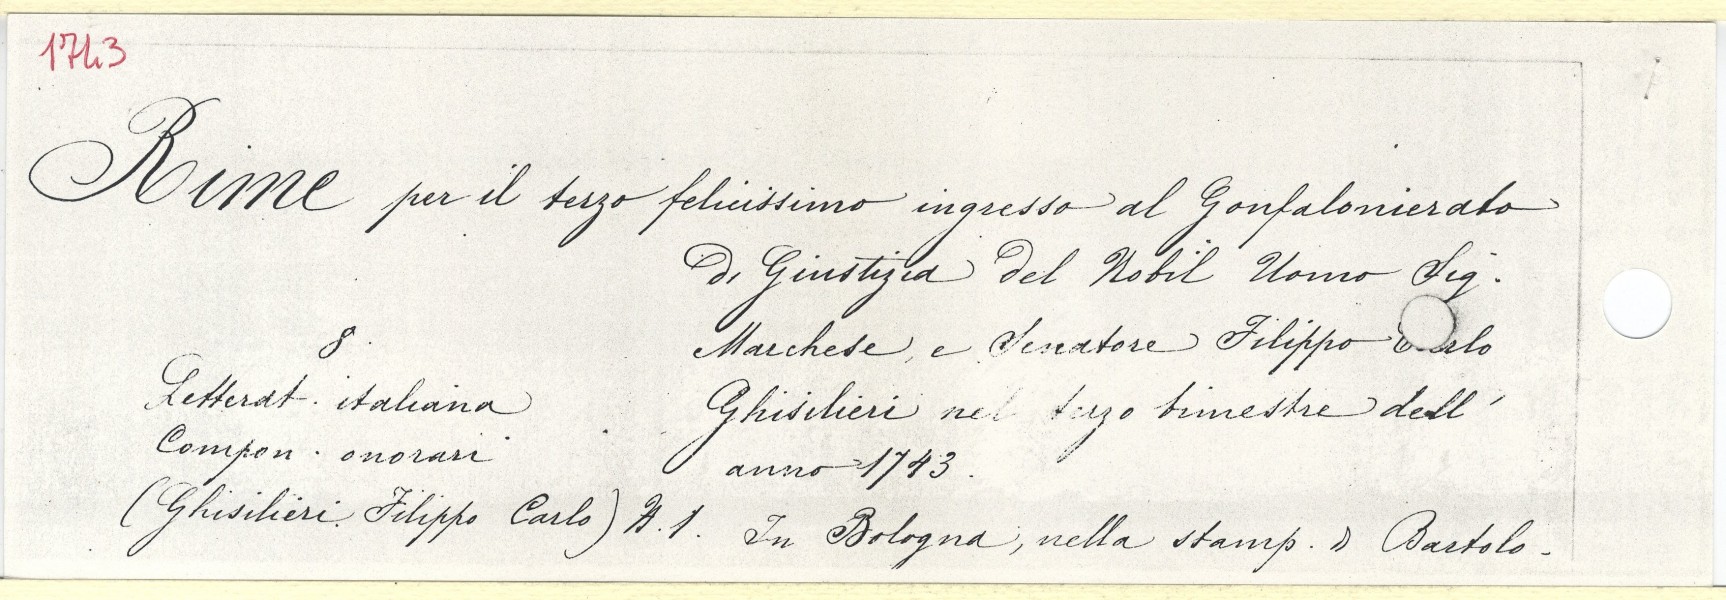 1743
Rime per il terzo felicissimo ingresso al Gonfalonierato
di Giustizia del Nobil Uomo Sig.
8.
Marchese, e Senatore Filippo Carlo
Letterat. italiana
Ghisilieri nel terzo bimestre dell'
Compon. onorari
anno 1743.
(Ghisilieri. Filippo Carlo) N. 1. In Bologna, nella stamp. D Bartolo-